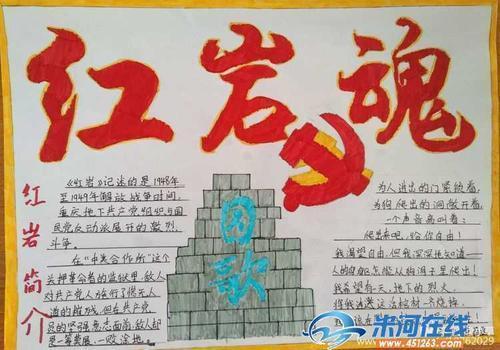 红岩魂
红岩简介
《红岩》记述的是1948年
至1949年解放战争时间,
重庆地下共产党组织与国
民党反动派展开的激烈
斗争。
在“中美合作所”这个
关押革命者的监狱里,敌人
对共产党人施行了惨无人
道的酷刑,但在共产党
员的坚强意志面前,敌人却
是一筹莫展,一败涂地。
国歌
为人进出的门紧锁着,
为狗爬出的洞敞开着,
一个声音高叫着:
爬出来吧,给你自由!
我渴望自由,但我深深地知道——
人的身躯怎能从狗洞子里爬出!
我希望有一天,地下的烈火,
将我连这活棺材一齐烧掉,
我应该在
米河启蒙
www.451263.com